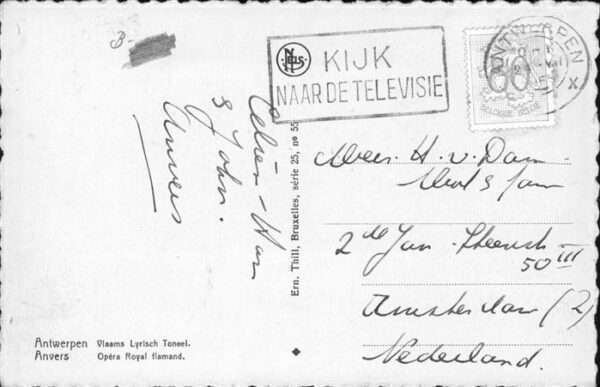 B-
NOS
KIJK
NAAR DE TELEVISIE
ANTWERPEN
X
BELGIQUE BELGIE
& John.
Anvers
Ern. Thill, Bruxelles, série 25, no 55
H. v. Dam
2de Jan Steenstr
50 III
Amsterdam (Z)
Nederland.
Antwerpen Vlaams Lyrisch Toneel.
Anvers Opéra Royal flamand.